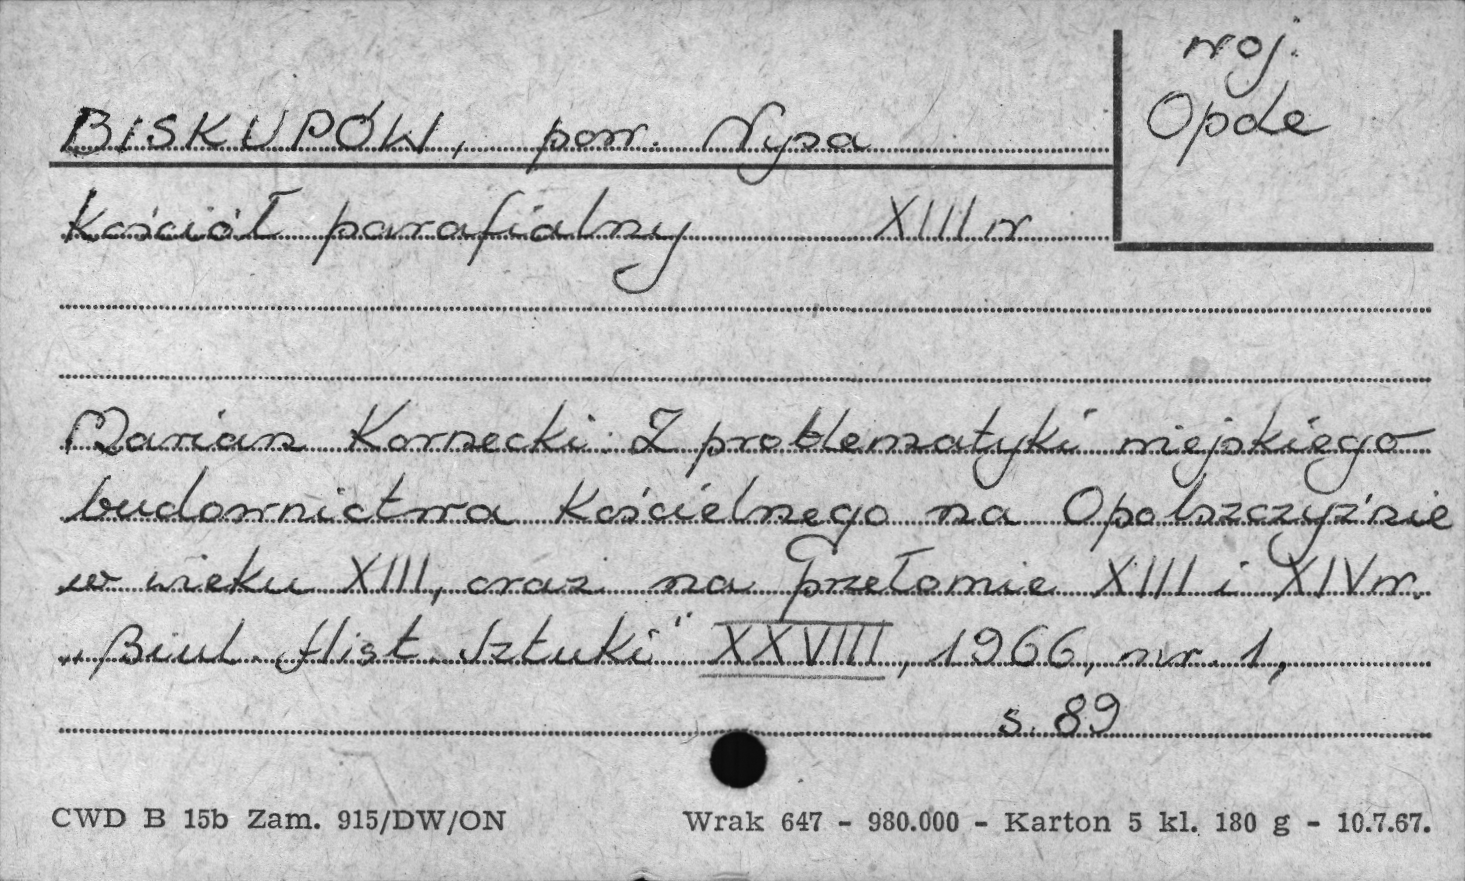 woj.
Opole
BISKUPÓW, pow. Nysa
Kościół parafialny XIII w
Marian Kornecki: Z problematyki miejskiego
budownictwa kościelnego na Opolszczyźnie
w wieku XIII, oraz na przełomie XIII i XIV w.
„Biul. Hist. Sztuki" XXVIII, 1966, nr. 1,
s. 89
CWD B 15b Zam. 915/DW/ON Wrak 647 - 980.000 - Karton 5 kl. 180 g - 10.7.67.